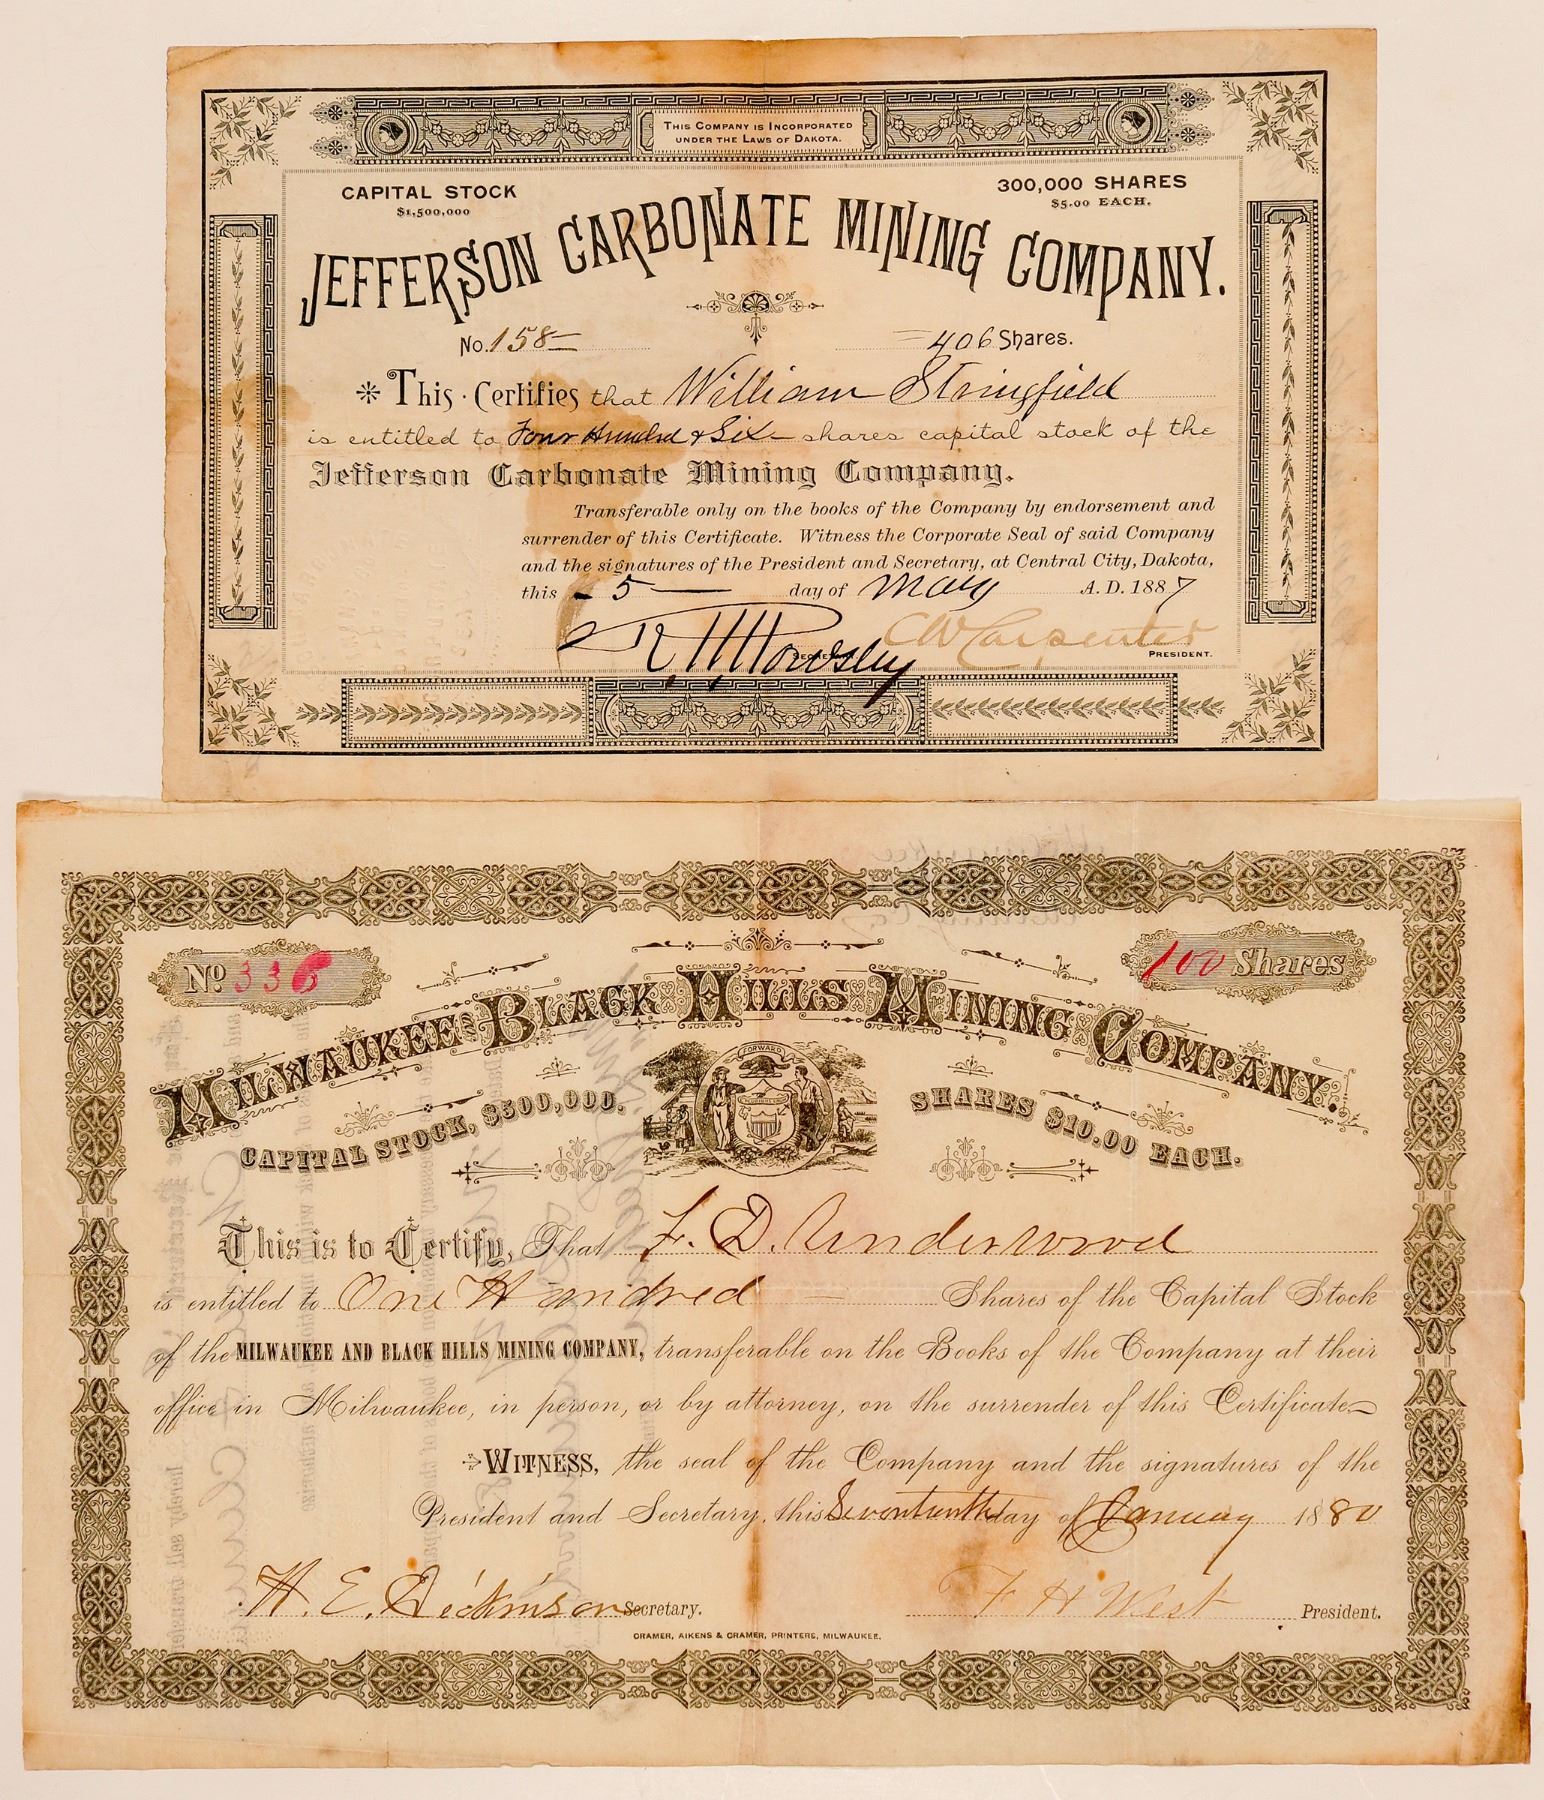 THIS COMPANY IS INCORPORATED
UNDER THE LAWS OF DAKOTA.
CAPITAL STOCK
$1,500,000
300,000 SHARES
$5.00 EACH.
JEFFERSON CARBONATE MINING COMPANY.
No. 158 406 Shares.
This Certifies that William Stringfield
is entitled to Four Hundred & Six shares capital stock of the
Jefferson Carbonate Mining Company.
Transferable only on the books of the Company by endorsement and
surrender of this Certificate. Witness the Corporate Seal of said Company
and the signatures of the President and Secretary, at Central City, Dakota,
this 5 day of May A.D. 1887
C W Carpenter
PRESIDENT.
No 336
100 Shares
MILWAUKEE AND BLACK HILLS MINING COMPANY.
FORWARD
CAPITAL STOCK, $500,000.
SHARES $10.00 EACH.
This is to Certify, That F. D. Underwood
is entitled to One Hundred Shares of the Capital Stock
of the MILWAUKEE AND BLACK HILLS MINING COMPANY, transferable on the Books of the Company at their
office in Milwaukee, in person, or by attorney, on the surrender of this Certificate
WITNESS, the seal of the Company and the signatures of the
President and Secretary, this Seventeenth day of January 1880
H. E. Dickinson Secretary.
F H West President.
CRAMER, AIKENS & CRAMER, PRINTERS, MILWAUKEE.